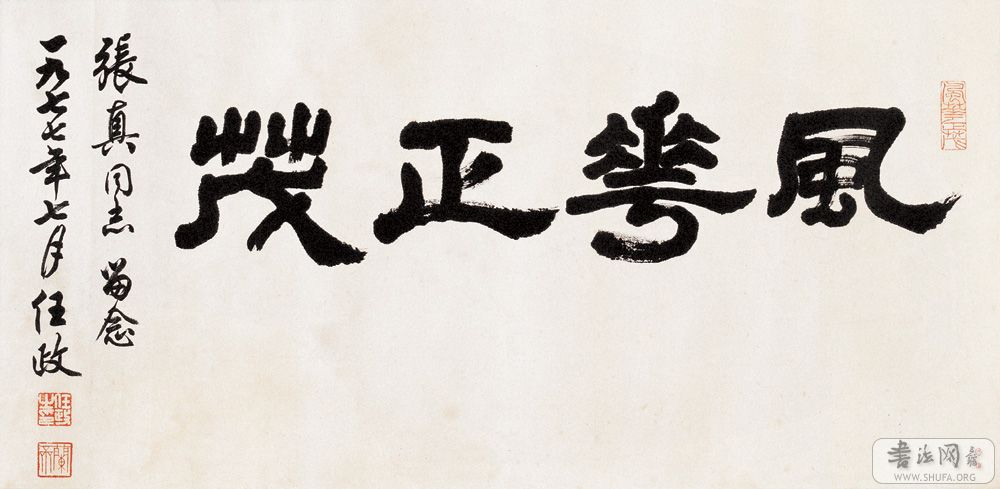 風華正茂
張真同志 留念
一九七七年七月 任政
任政
書法网
WWW.SHUFA.ORG